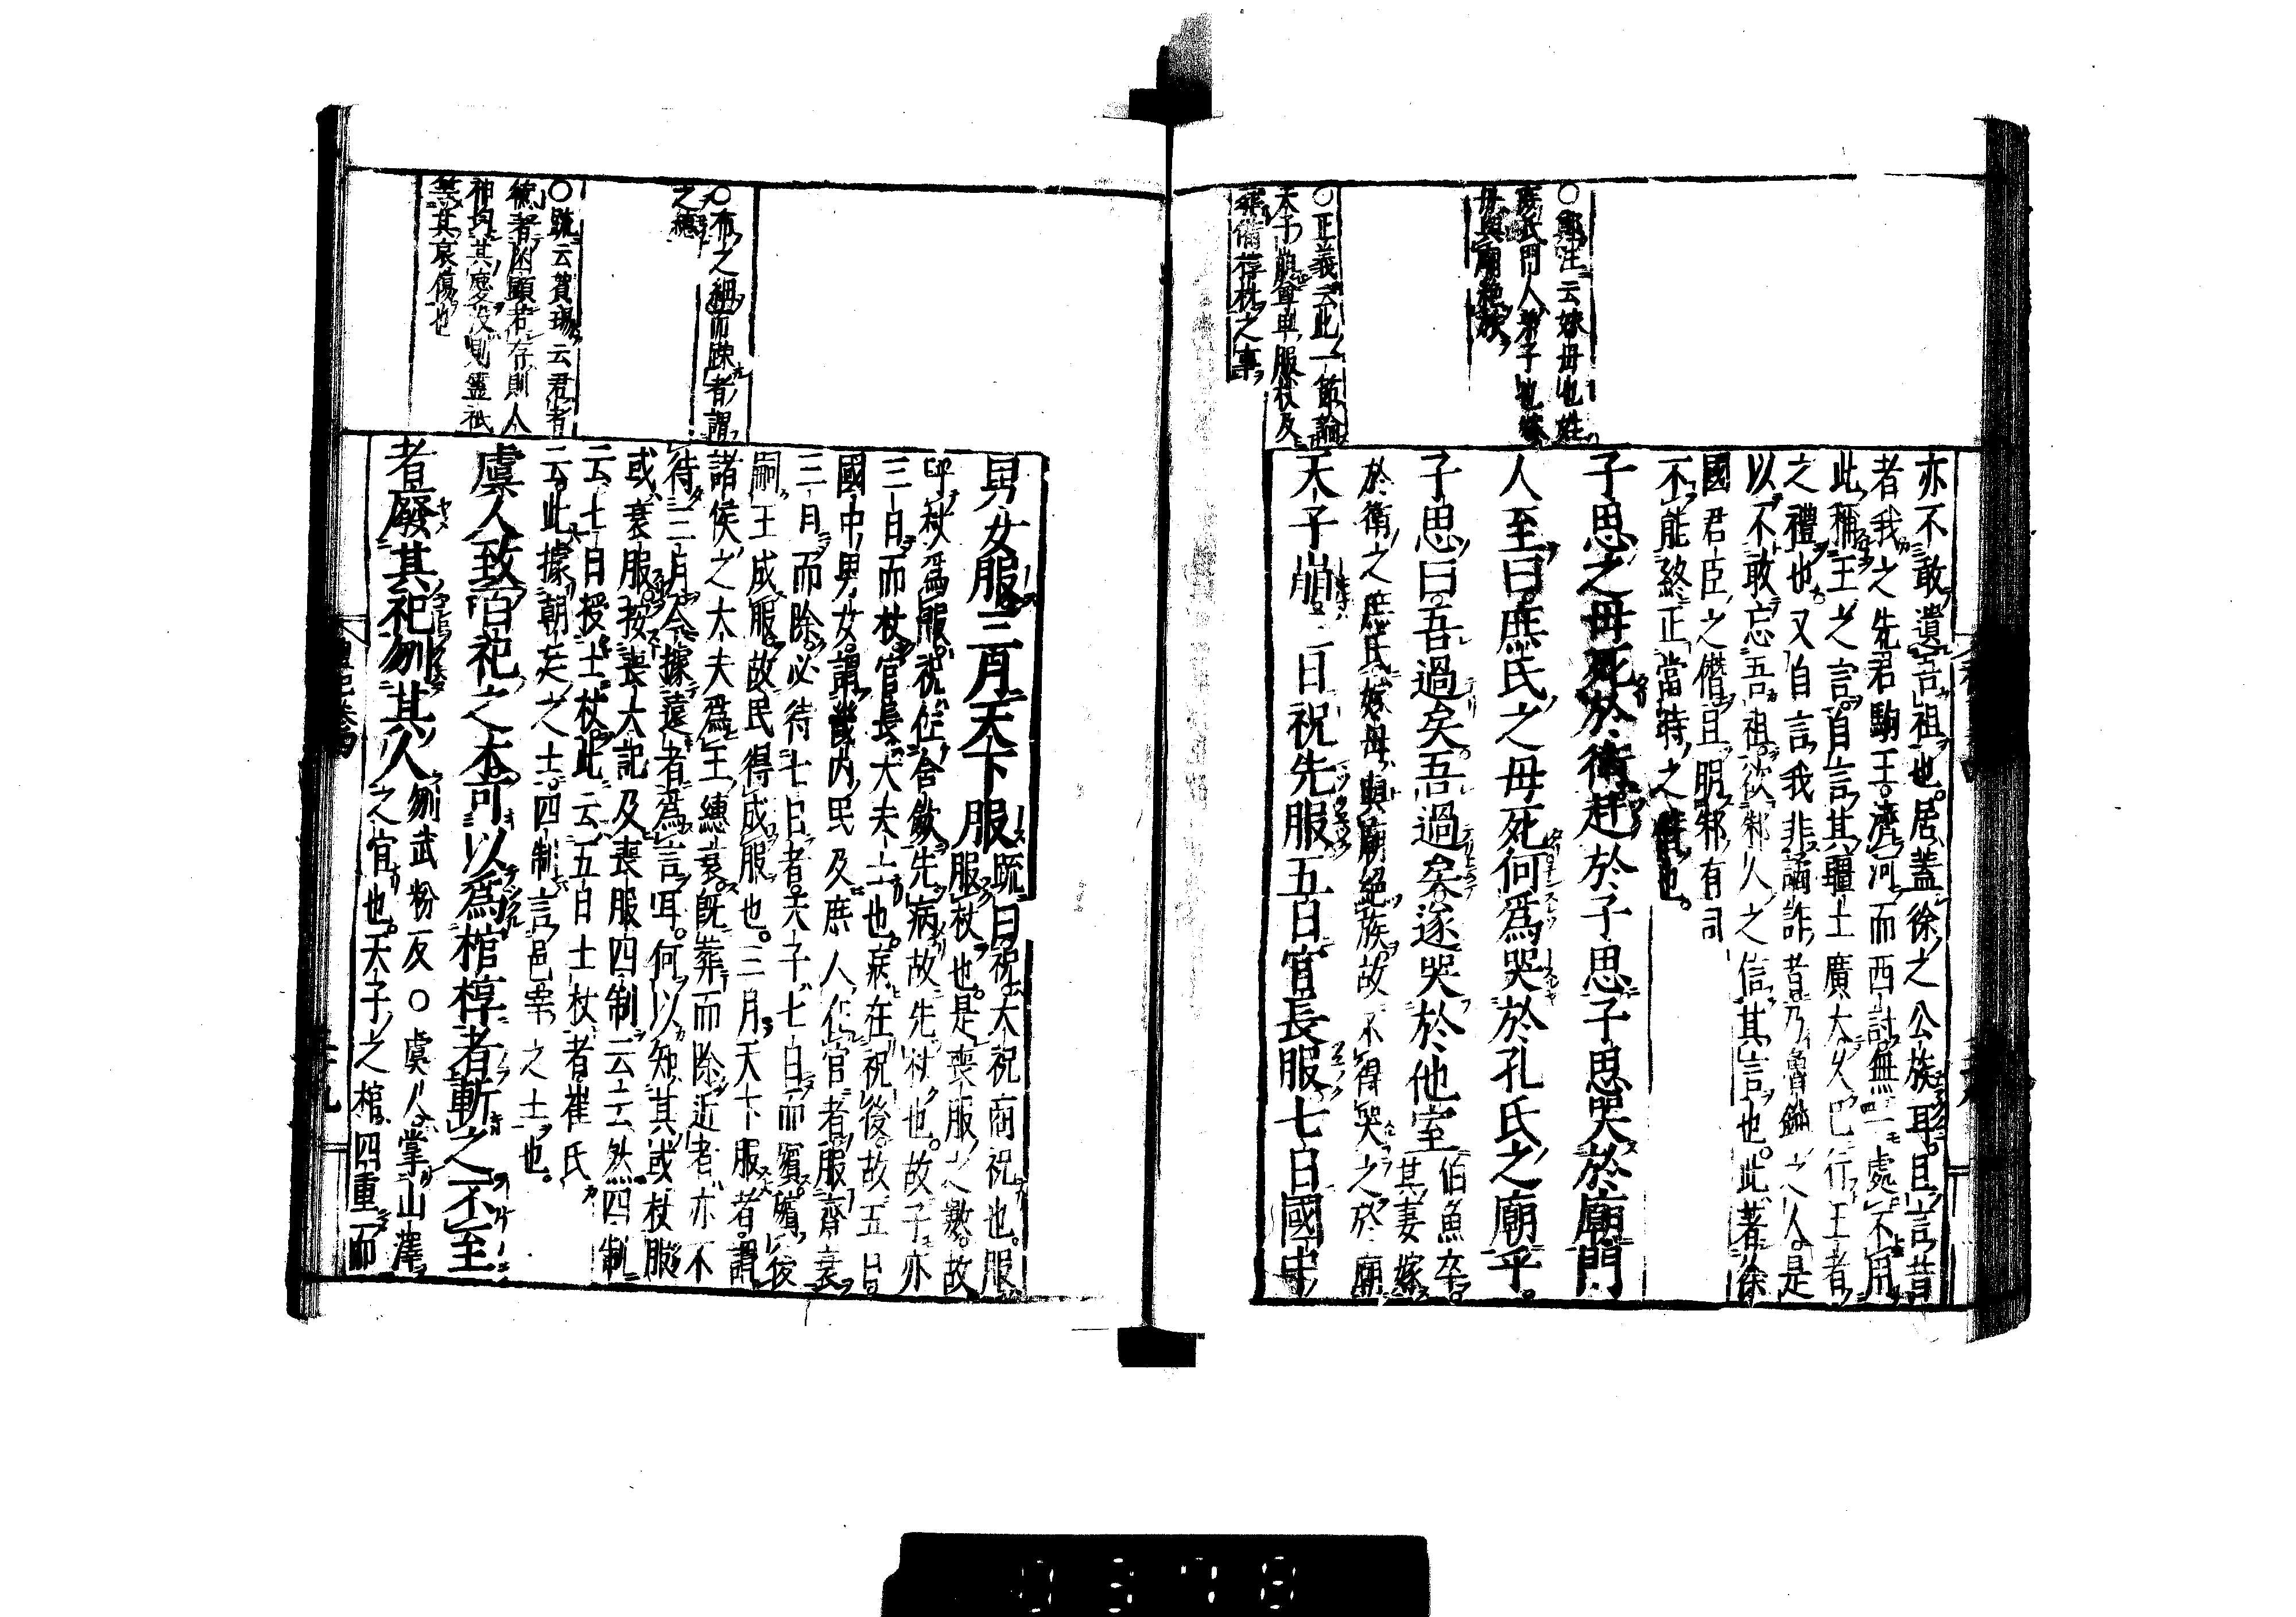 ○鄭注云嫁母也姓
庶氏門人弟子也嫁
母與廟絶族
○正義云此一節論
天子崩尊卑服杖及
葬備椁材之事
亦不敢遺吾祖也居蓋徐之公族耳且言昔
者我之先君駒王濟河而西討無一處不用
此稱王之言自言其疆土廣大久已行王者
之禮也又自言我非譎詐者乃魯鈍之人是
以不敢忘吾祖欲邾人之信其言也此著徐
國君臣之僭且明邾有司
不能終正當時之僭也
子思之母死於衞赴於子思子思哭於廟門
人至曰庶氏之母死何爲哭於孔氏之廟乎
子思曰吾過矣吾過矣遂哭於他室
伯魚卒其妻嫁
於衞之庶氏嫁母與廟絶族故不得哭之於廟
天子崩三日祝先服五日官長服七日國中
○布之細而踈者謂
之繐
○疏云賀瑒云君者
德者因顯君存則人
神均其慶沒則靈祇
等其哀傷也
男女服三月天下服
疏曰祝大祝商祝也服
服杖也是喪服之數故
呼杖爲服祝佐含斂先病故先杖也故子亦
三日而杖官長大夫士也病在祝後故五日
國中男女謂畿内民及庶人在官者服齊衰
三月而除必待七日者天子七日而殯殯後
嗣王成服故民得成服也三月天下服者謂
諸侯之大夫爲王繐衰既葬而除近者亦不
待三月今據遠者爲言耳何以知其或杖服
或衰服按喪大記及喪服四制云云然四制
云七日授士杖此云五日士杖者崔氏
云此據朝廷之士四制言邑宰之士也
虞人致百祀之木可以爲棺椁者斬之不至
者廢其祀刎其人
刎武粉反○虞人掌山澤
之官也天子之棺四重而